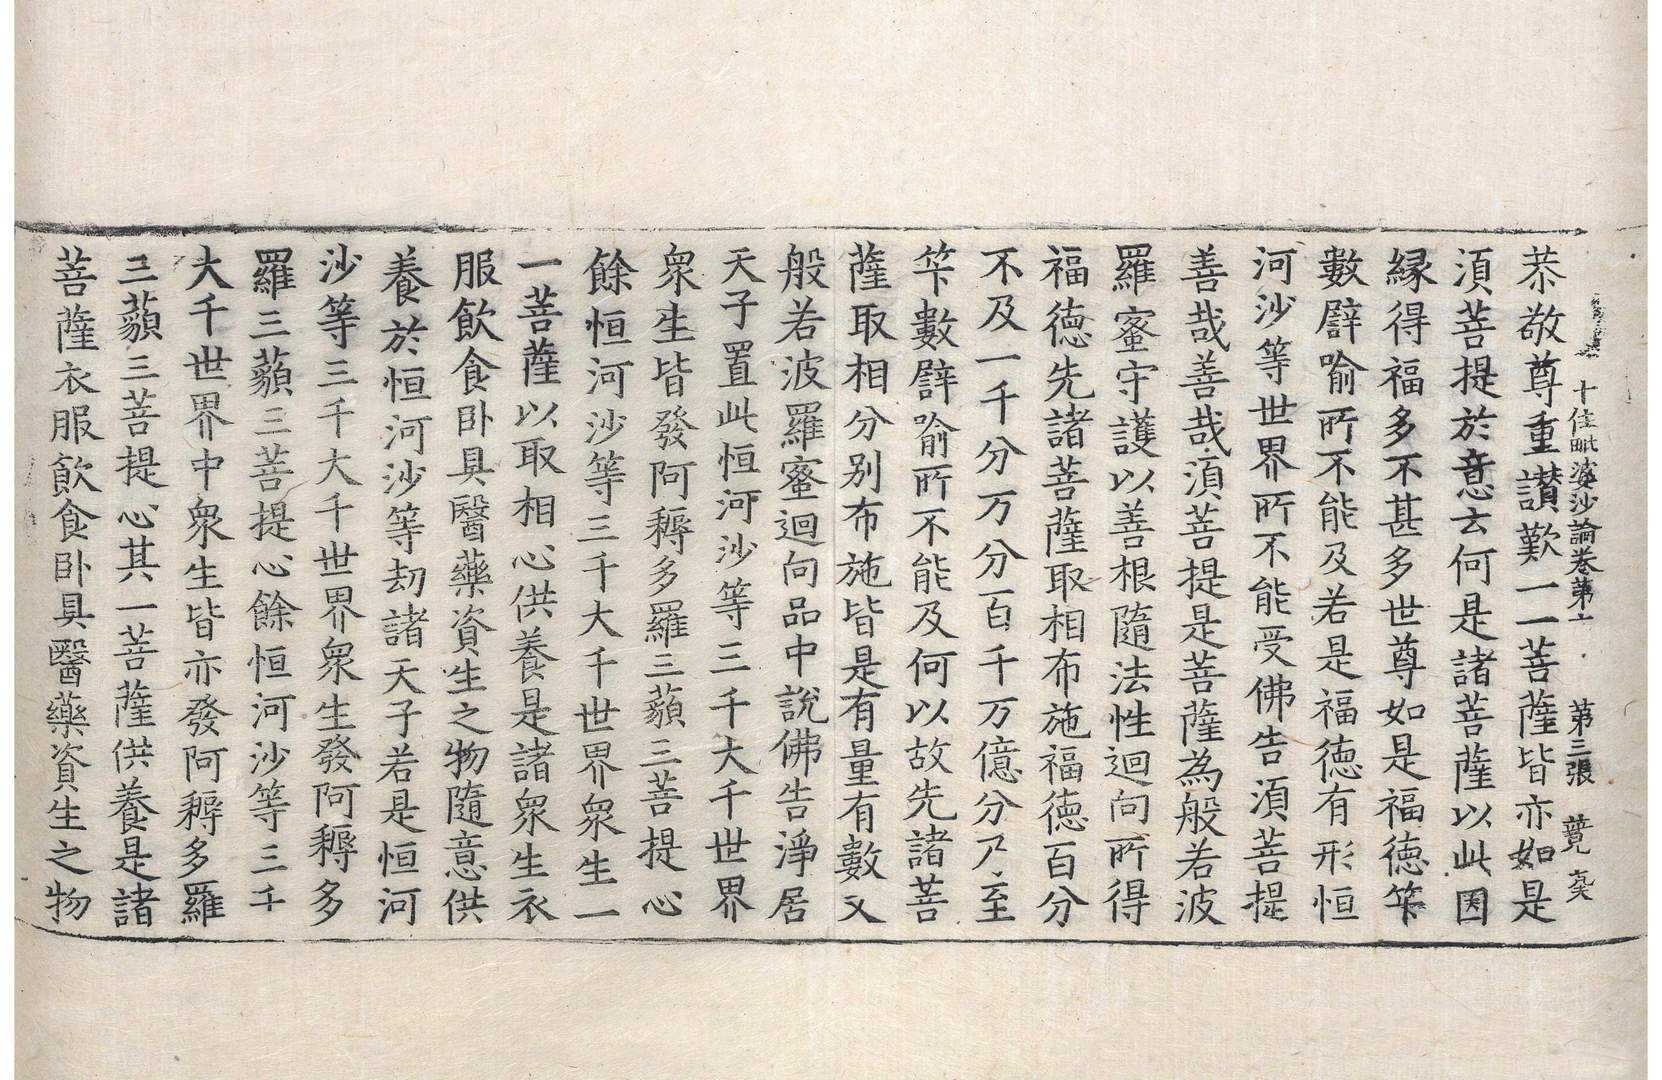 十住毗婆沙論卷第六　第三張　競
恭敬尊重讃歎一一菩薩皆亦如是
湏菩提於意云何是諸菩薩以此因
縁得福多不甚多世尊如是福徳筭
數譬喻所不能及若是福徳有形恒
河沙等世界所不能受佛告湏菩提
善哉善哉湏菩提是菩薩為般若波
羅蜜守護以善根隨法性迴向所得
福徳先諸菩薩取相布施福徳百分
不及一千分万分百千万億分乃至
筭數譬喻所不能及何以故先諸菩
薩取相分别布施皆是有量有數又
般若波羅蜜迴向品中說佛告淨居
天子置此恒河沙等三千大千世界
衆生皆發阿耨多羅三藐三菩提心
餘恒河沙等三千大千世界衆生一
一菩薩以取相心供養是諸衆生衣
服飲食卧具醫藥資生之物隨意供
養於恒河沙等劫諸天子若是恒河
沙等三千大千世界衆生發阿耨多
羅三藐三菩提心餘恒河沙等三千
大千世界中衆生皆亦發阿耨多羅
三藐三菩提心其一菩薩供養是諸
菩薩衣服飲食卧具醫藥資生之物